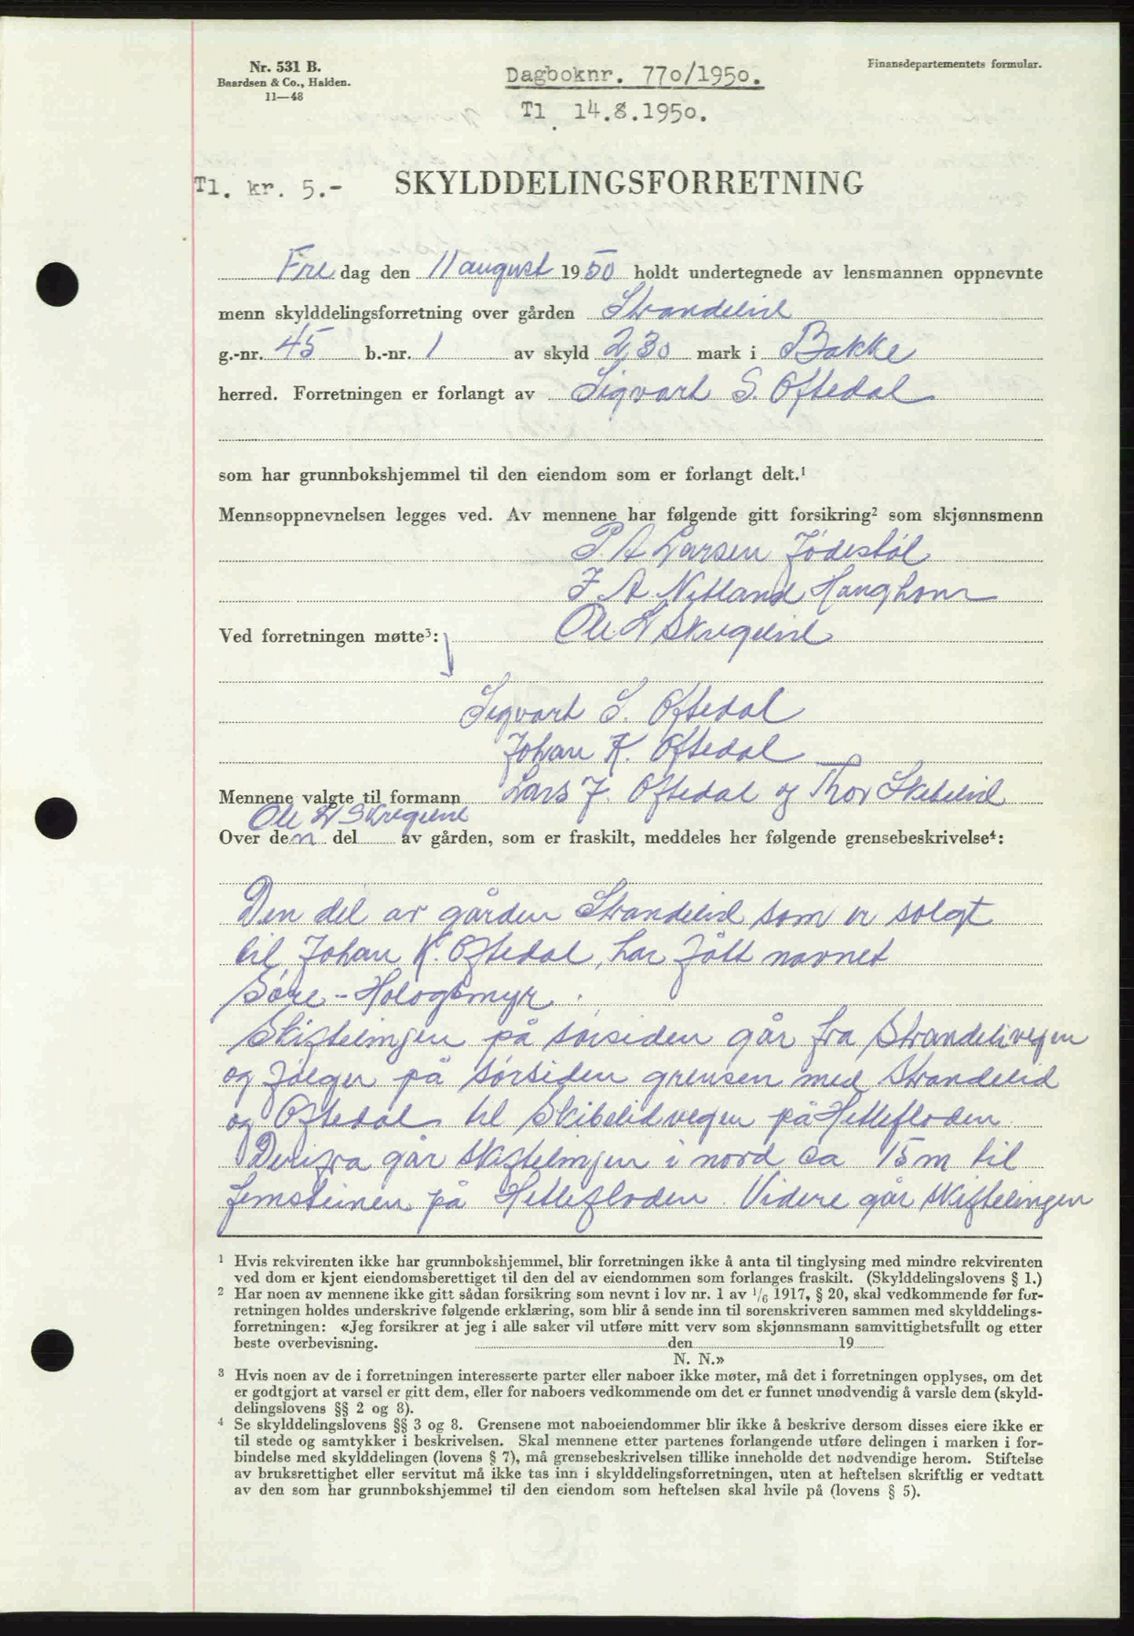 Nr. 531 B.
Baardsen & Co., Halden.
11—48
Dagboknr. 770/1950.
Tl. 14.8.1950.
Finansdepartementets formular.
Tl. kr. 5.- SKYLDDELINGSFORRETNING
Fre dag den 11 august 1950 holdt undertegnede av lensmannen oppnevnte
menn skylddelingsforretning over gården Strandelid
g.-nr. 45 b.-nr. 1 av skyld 2,30 mark i Bakke
herred. Forretningen er forlangt av Sigvart S. Oftedal
som har grunnbokshjemmel til den eiendom som er forlangt delt.¹
Mennsoppnevnelsen legges ved. Av mennene har følgende gitt forsikring² som skjønnsmenn
P. A Larsen Jødestøl
J A Netland Haughom
Ole Skregelid
Ved forretningen møtte³:
Sigvart S. Oftedal
Johan K. Oftedal
Lars J. Oftedal og Thor Skibelid
Mennene valgte til formann
Ole Skregelid
Over den del av gården, som er fraskilt, meddeles her følgende grensebeskrivelse⁴:
Den del av gården Strandelid som er solgt
til Johan K. Oftedal, har fått navnet
Søre-Hologsmyr.
Skiftelinjen på sørsiden går fra Strandelivegen
og følger på sørsiden grensen med Strandelid
og Oftedal til Skibelidvegen på Hellefloden
Derifra går skiftelinjen i nord ca 15m til
jemsteinen på Hellefloden. Videre går skiftelingen
¹ Hvis rekvirenten ikke har grunnbokshjemmel, blir forretningen ikke å anta til tinglysing med mindre rekvirenten
ved dom er kjent eiendomsberettiget til den del av eiendommen som forlanges fraskilt. (Skylddelingslovens § 1.)
² Har noen av mennene ikke gitt sådan forsikring som nevnt i lov nr. 1 av 1/6 1917, § 20, skal vedkommende før for-
retningen holdes underskrive følgende erklæring, som blir å sende inn til sorenskriveren sammen med skylddelings-
forretningen: «Jeg forsikrer at jeg i alle saker vil utføre mitt verv som skjønnsmann samvittighetsfullt og etter
beste overbevisning. den 19
N. N.»
³ Hvis noen av de i forretningen interesserte parter eller naboer ikke møter, må det i forretningen opplyses, om det
er godtgjort at varsel er gitt dem, eller for naboers vedkommende om det er funnet unødvendig å varsle dem (skyld-
delingslovens §§ 2 og 8).
⁴ Se skylddelingslovens §§ 3 og 8. Grensene mot naboeiendommer blir ikke å beskrive dersom disses eiere ikke er
til stede og samtykker i beskrivelsen. Skal mennene etter partenes forlangende utføre delingen i marken i for-
bindelse med skylddelingen (lovens § 7), må grensebeskrivelsen tillike inneholde det nødvendige herom. Stiftelse
av bruksrettighet eller servitut må ikke tas inn i skylddelingsforretningen, uten at heftelsen skriftlig er vedtatt
av den som har grunnbokshjemmel til den eiendom som heftelsen skal hvile på (lovens § 5).